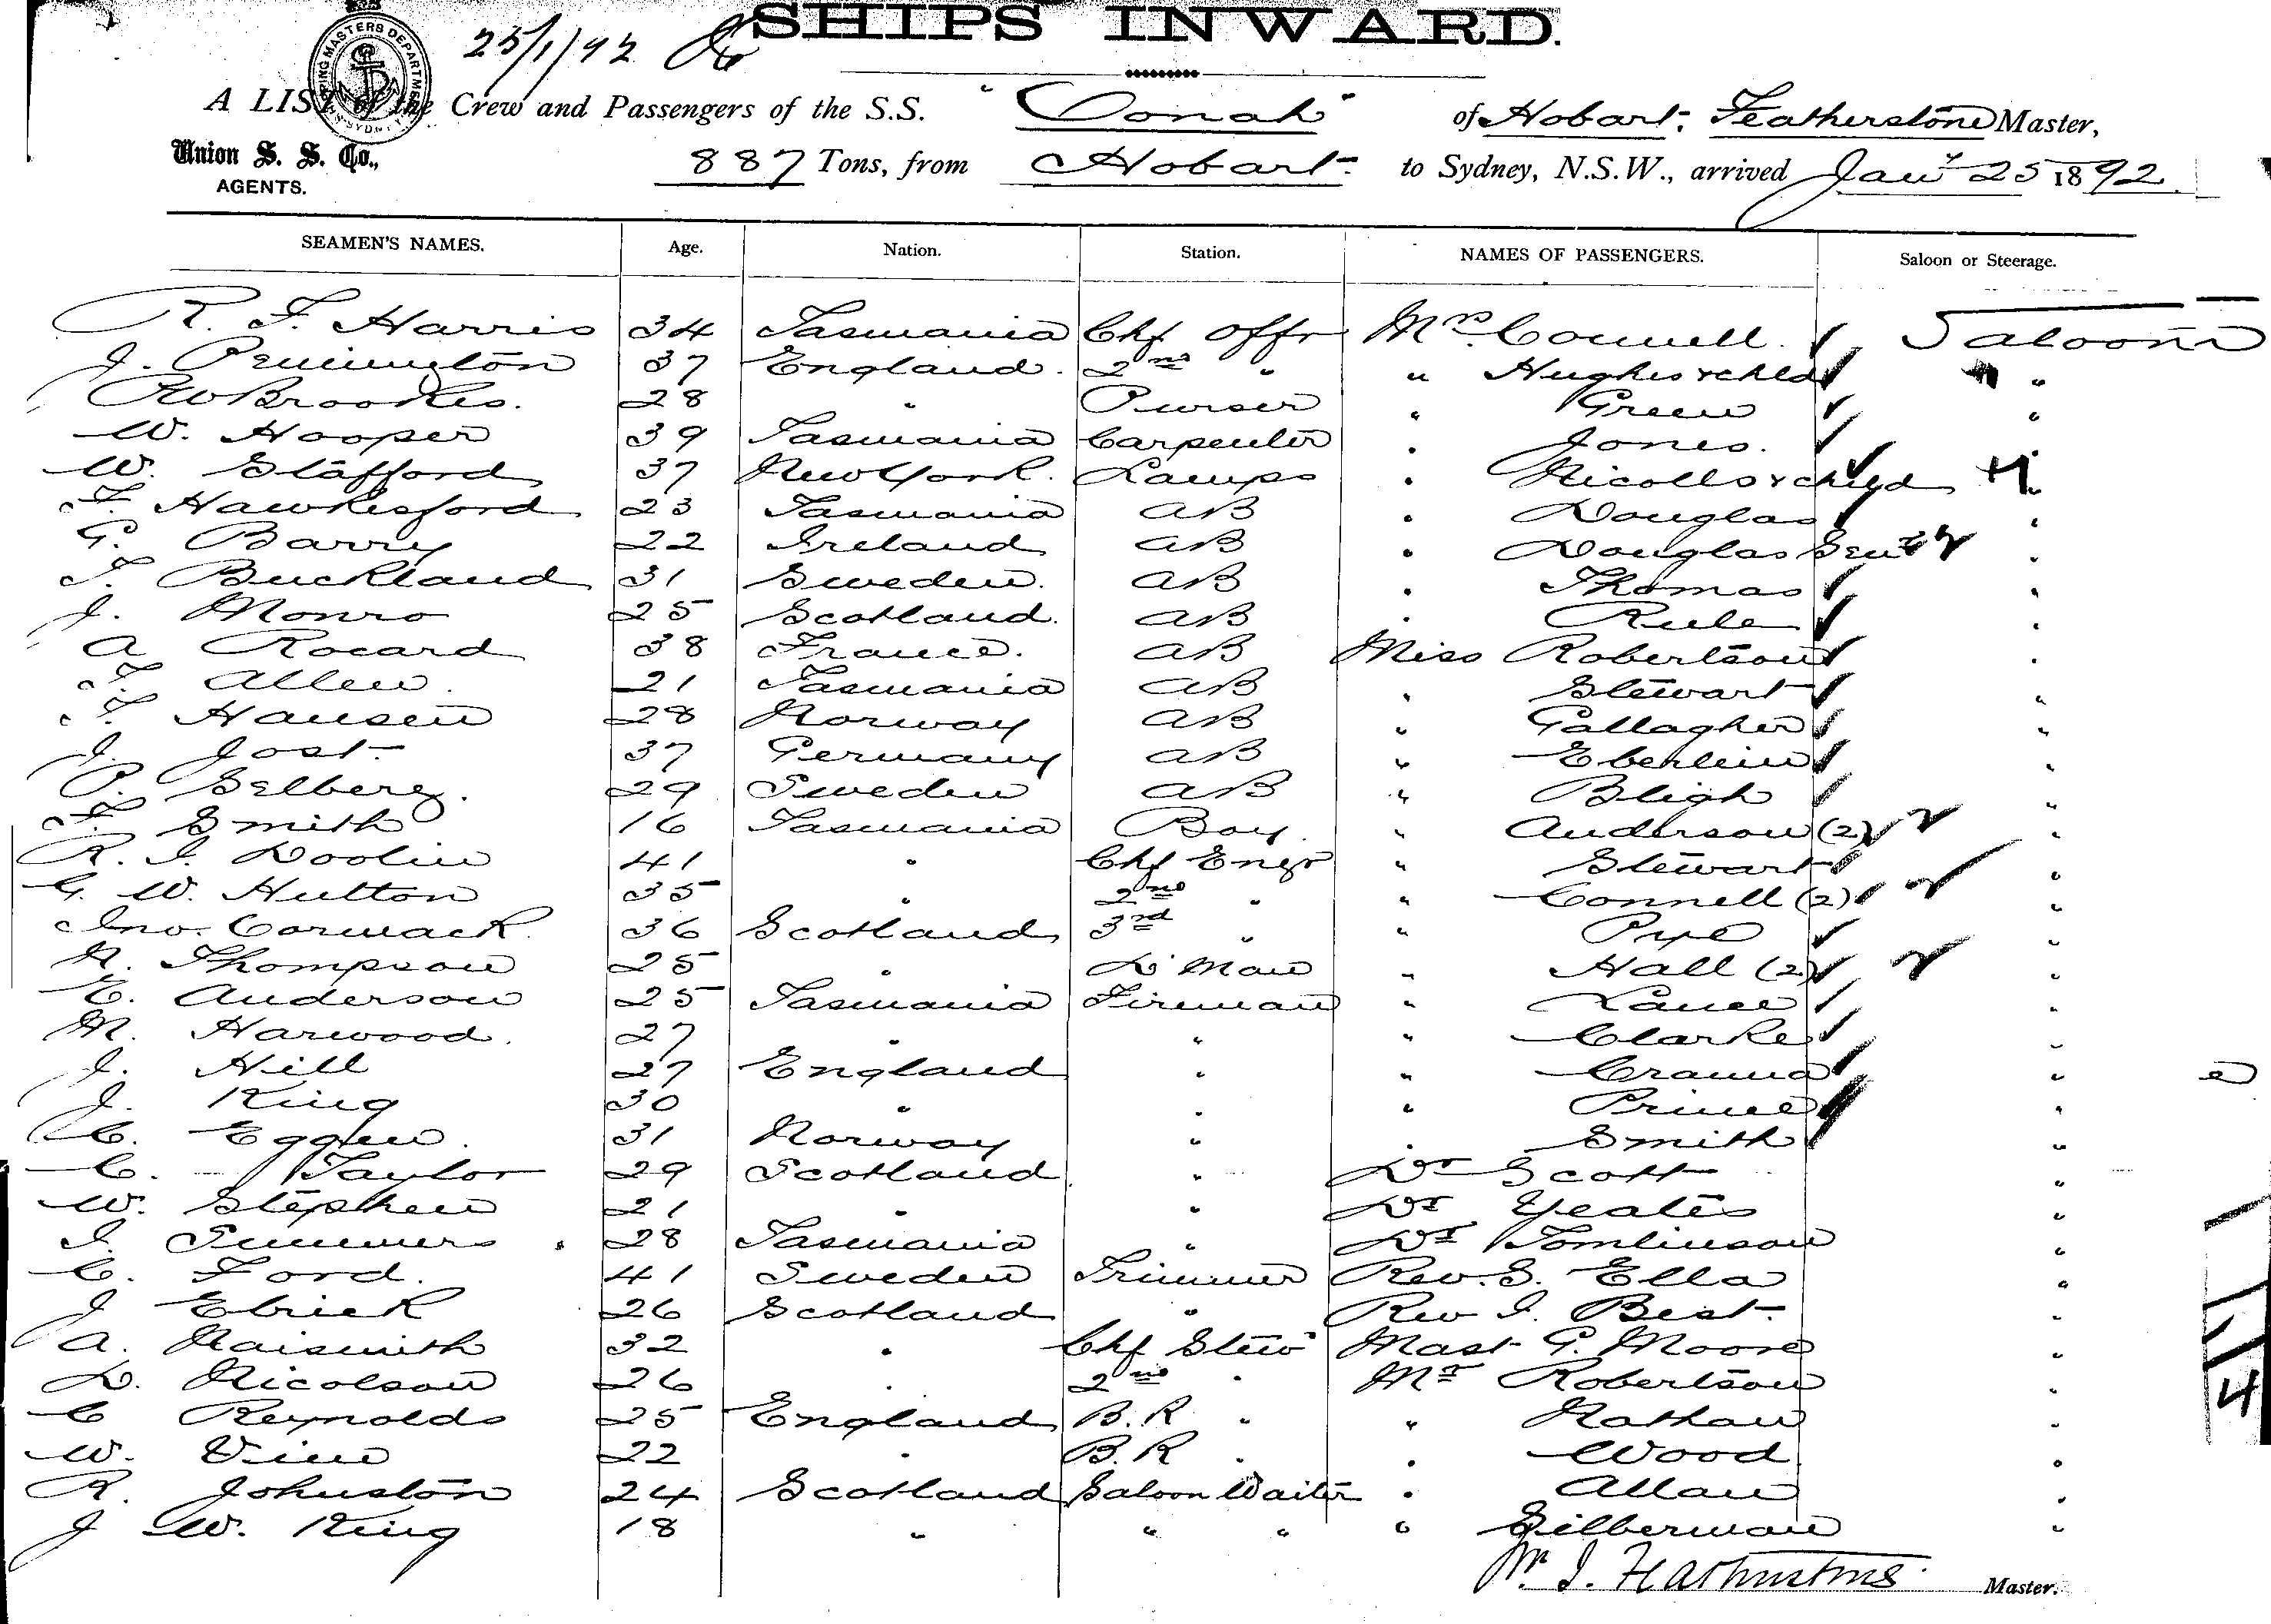 SHIPS INWARD.
25/1/92
A LIST of the Crew and Passengers of the S.S. "Oonah" of Hobart, Featherstone Master,
Union S. S. Co., AGENTS.
887 Tons, from Hobart to Sydney, N.S.W., arrived Jany 25 1892
SEAMEN'S NAMES. Age. Nation. Station. NAMES OF PASSENGERS. Saloon or Steerage.
R. F. Harris 34 Tasmania Chf Offr Mrs Connell. Saloon
J. Pennington 37 England. 2nd " " Hughes & chld "
RW Brookes. 28 " Purser " Green "
W. Hooper 39 Tasmania Carpenter " Jones. "
W. Stafford 37 New York. Lamps " Nicolls & child "
F. Hawkesford 23 Tasmania AB " Douglas "
G. Barry 22 Ireland AB " Douglas "
T. Buckland 31 Sweden. AB " Thomas "
J. Monro 25 Scotland. AB " Rule "
A Rocard 38 France. AB Miss Robertson "
T. Allen. 21 Tasmania AB " Stewart "
T. Hansen 28 Norway AB " Gallagher "
J. Jost 37 Germany AB " Eberlein "
P. Selberg. 29 Sweden AB " Bligh "
F. Smith 16 Tasmania Boy. " Anderson (2) "
R. J. Doolin 41 " Chf Engr " Stewart "
G. W. Hutton 35 " 2nd " " Connell (2) "
Jno. Cormack. 36 Scotland 3rd " " Pye "
N. Thompson 25 " D'Man " Hall (2) "
E. Anderson 25 Tasmania Fireman " Lance "
M. Harwood. 27 " " " Clarke "
J. Hill 27 England " " "
J. King 30 " " " Prince "
C. Eggen. 31 Norway " " Smith "
C. Taylor 29 Scotland " Dr Scott "
W. Stephen 21 " " Dr Yeates "
J. Summers 28 Tasmania " Dr Tomlinson "
C. Ford. 41 Sweden Trimmer Rev. S. Ella "
J Ebrick 26 Scotland " Rev J. Best "
A. Naismith 32 " Chf Stew Mast G. Moore "
D. Nicolson 26 " 2nd " Mr Robertson "
C Reynolds 25 England B.R " " Nathan "
W. Vine 22 " B.R " " Wood "
R. Johnston 24 Scotland Saloon Waiter " Allan "
J W. King 18 " " " " Silberman "
Master.